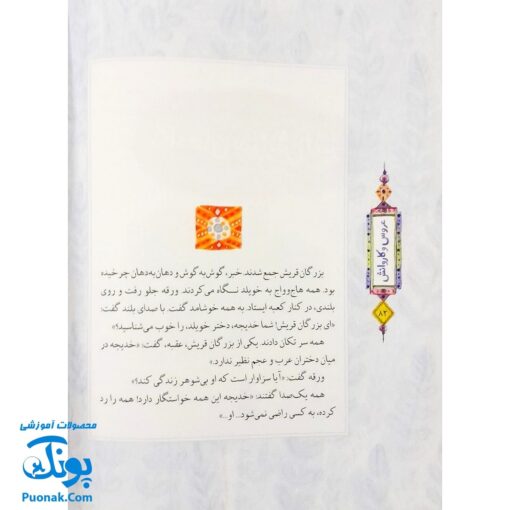 بزرگان قریش جمع شدند خبر، گوش به گوش و دهان به دهان چرخیده
بود. همه هاج‌وواج به خویلد نگاه می‌کردند. ورقه جلو رفت و روی
بلندی، در کنار کعبه ایستاد. به همه خوشامد گفت. با صدای بلند گفت:
«ای بزرگان قریش! شما خدیجه، دختر خویلد، را خوب می‌شناسید؟»
همه سر تکان دادند. یکی از بزرگان قریش، عقبه، گفت: «خدیجه در
میان دختران عرب و عجم نظیر ندارد.»
ورقه گفت: «آیا سزاوار است که او بی‌شوهر زندگی کند؟»
همه یک‌صدا گفتند: «خدیجه این همه خواستگار دارد! همه را رد
کرده، به کسی راضی نمی‌شود.. او..»
عروس و کاروانش
۸۲
محصولات آموزشی
پونک
Puonak.Com